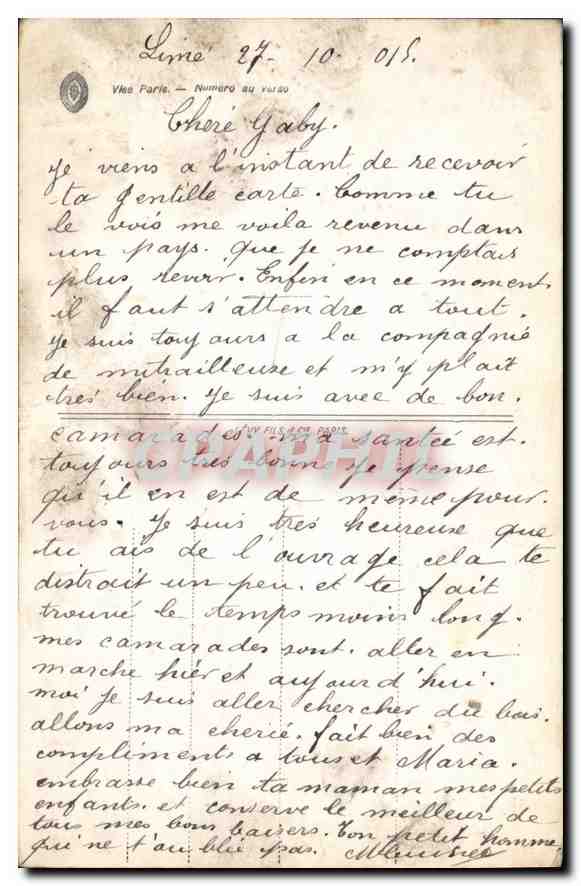 Limé 27- 10- 015.
Visé Paris. — Numéro au verso
Cheré Gaby.
Je viens a l'instant de recevoir
ta gentille carte. Comme tu
le vois me voila revenu dans
un pays. Que je ne comptais
plus revoir. Enfin en ce moment
il faut s'attendre a tout.
Je suis toujours a la compagnie
de mitrailleuse et m'y plait
trés bien. Je suis avec de bon.
LÉVY FILS & Cie PARIS
camarades. ma santée est.
CPAPHIL
toujours trés bonne je pense
qu'il en est de même pour.
vous. Je suis trés heureuse que
tu ais de l'ouvrage cela te
distrait un peu. et te fait
trouvé le temps moins long.
mes camarades sont. aller en
marche hier et aujourd'hui.
moi je suis aller chercher du bois.
allons ma cherie. fait bien des
compliments a tous et Maria.
embrasse bien ta maman mes petits
enfants. et conserve le meilleur de
tous mes bons baisers. Ton petit homme
qui ne t'oublie pas.